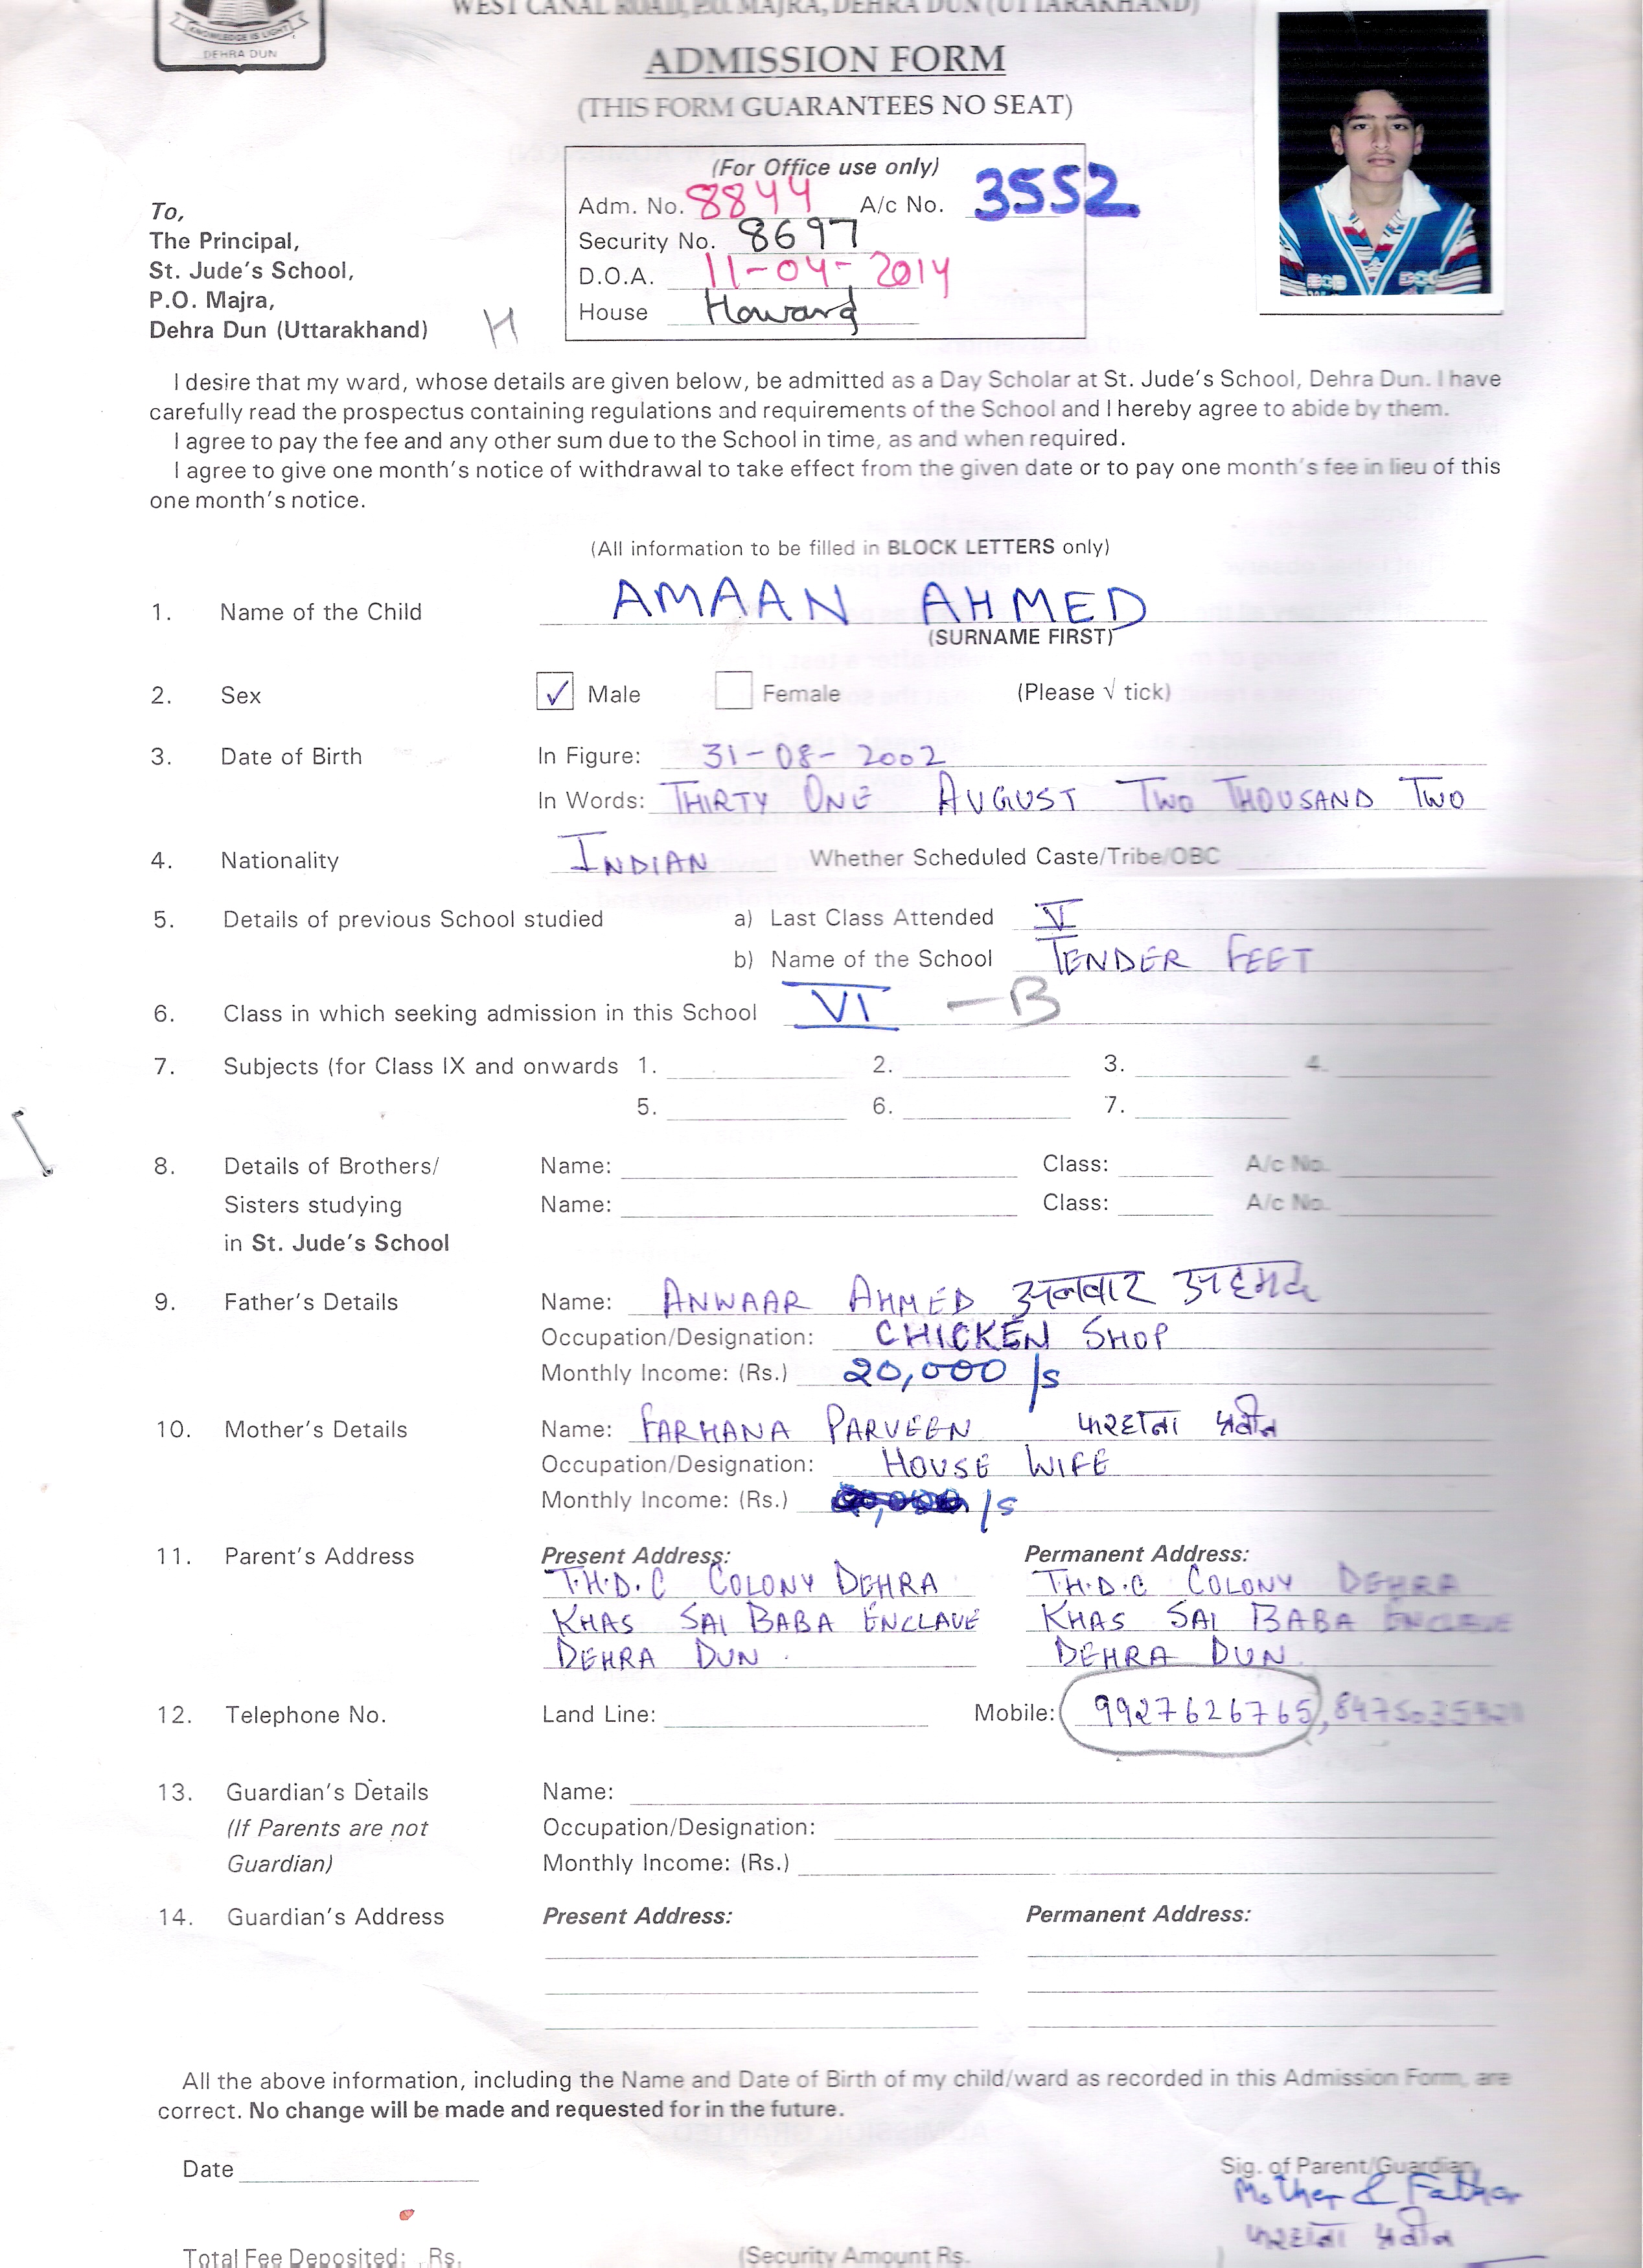 WEST CANAL ROAD, P.O. MAJRA, DEHRA DUN (UTTARAKHAND)
KNOWLEDGE IS LIGHT
DEHRA DUN
ADMISSION FORM
(THIS FORM GUARANTEES NO SEAT)
(For Office use only)
Adm. No. 8844 A/c No. 3552
Security No. 8697
D.O.A. 11-04-2014
House Howard
To,
The Principal,
St. Jude's School,
P.O. Majra,
Dehra Dun (Uttarakhand)
H
I desire that my ward, whose details are given below, be admitted as a Day Scholar at St. Jude's School, Dehra Dun. I have
carefully read the prospectus containing regulations and requirements of the School and I hereby agree to abide by them.
I agree to pay the fee and any other sum due to the School in time, as and when required.
I agree to give one month's notice of withdrawal to take effect from the given date or to pay one month's fee in lieu of this
one month's notice.
(All information to be filled in BLOCK LETTERS only)
1. Name of the Child AMAAN AHMED
(SURNAME FIRST)
2. Sex ✓ Male Female (Please √ tick)
3. Date of Birth In Figure: 31-08-2002
In Words: THIRTY ONE AUGUST TWO THOUSAND TWO
4. Nationality INDIAN Whether Scheduled Caste/Tribe/OBC
5. Details of previous School studied a) Last Class Attended V
b) Name of the School TENDER FEET
6. Class in which seeking admission in this School VI -B
7. Subjects (for Class IX and onwards 1. 2. 3. 4.
5. 6. 7.
8. Details of Brothers/ Name: Class: A/c No.
Sisters studying Name: Class: A/c No.
in St. Jude's School
9. Father's Details Name: ANWAAR AHMED अनवार अहमद
Occupation/Designation: CHICKEN SHOP
Monthly Income: (Rs.) 20,000 /s
10. Mother's Details Name: FARHANA PARVEEN फरहाना प्रवीन
Occupation/Designation: HOUSE WIFE
Monthly Income: (Rs.) /s
11. Parent's Address Present Address: Permanent Address:
T.H.D.C COLONY DEHRA T.H.D.C COLONY DEHRA
KHAS SAI BABA ENCLAVE KHAS SAI BABA ENCLAVE
DEHRA DUN. DEHRA DUN
12. Telephone No. Land Line: Mobile: 9927626765,
13. Guardian's Details Name:
(If Parents are not Occupation/Designation:
Guardian) Monthly Income: (Rs.)
14. Guardian's Address Present Address: Permanent Address:
All the above information, including the Name and Date of Birth of my child/ward as recorded in this Admission Form, are
correct. No change will be made and requested for in the future.
Date Sig. of Parent/Guardian
Mother & Father
फरहाना प्रवीन
Total Fee Deposited: Rs. (Security Amount Rs. )